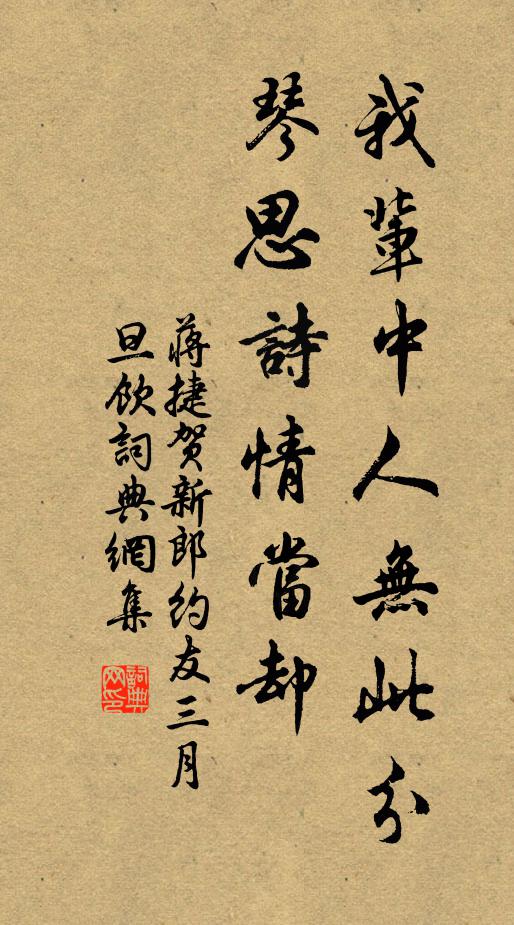 我輩中人無此分
琴思詩情當却
蔣捷賀新郎約友三月
旦飲詞典網集
詞典網印